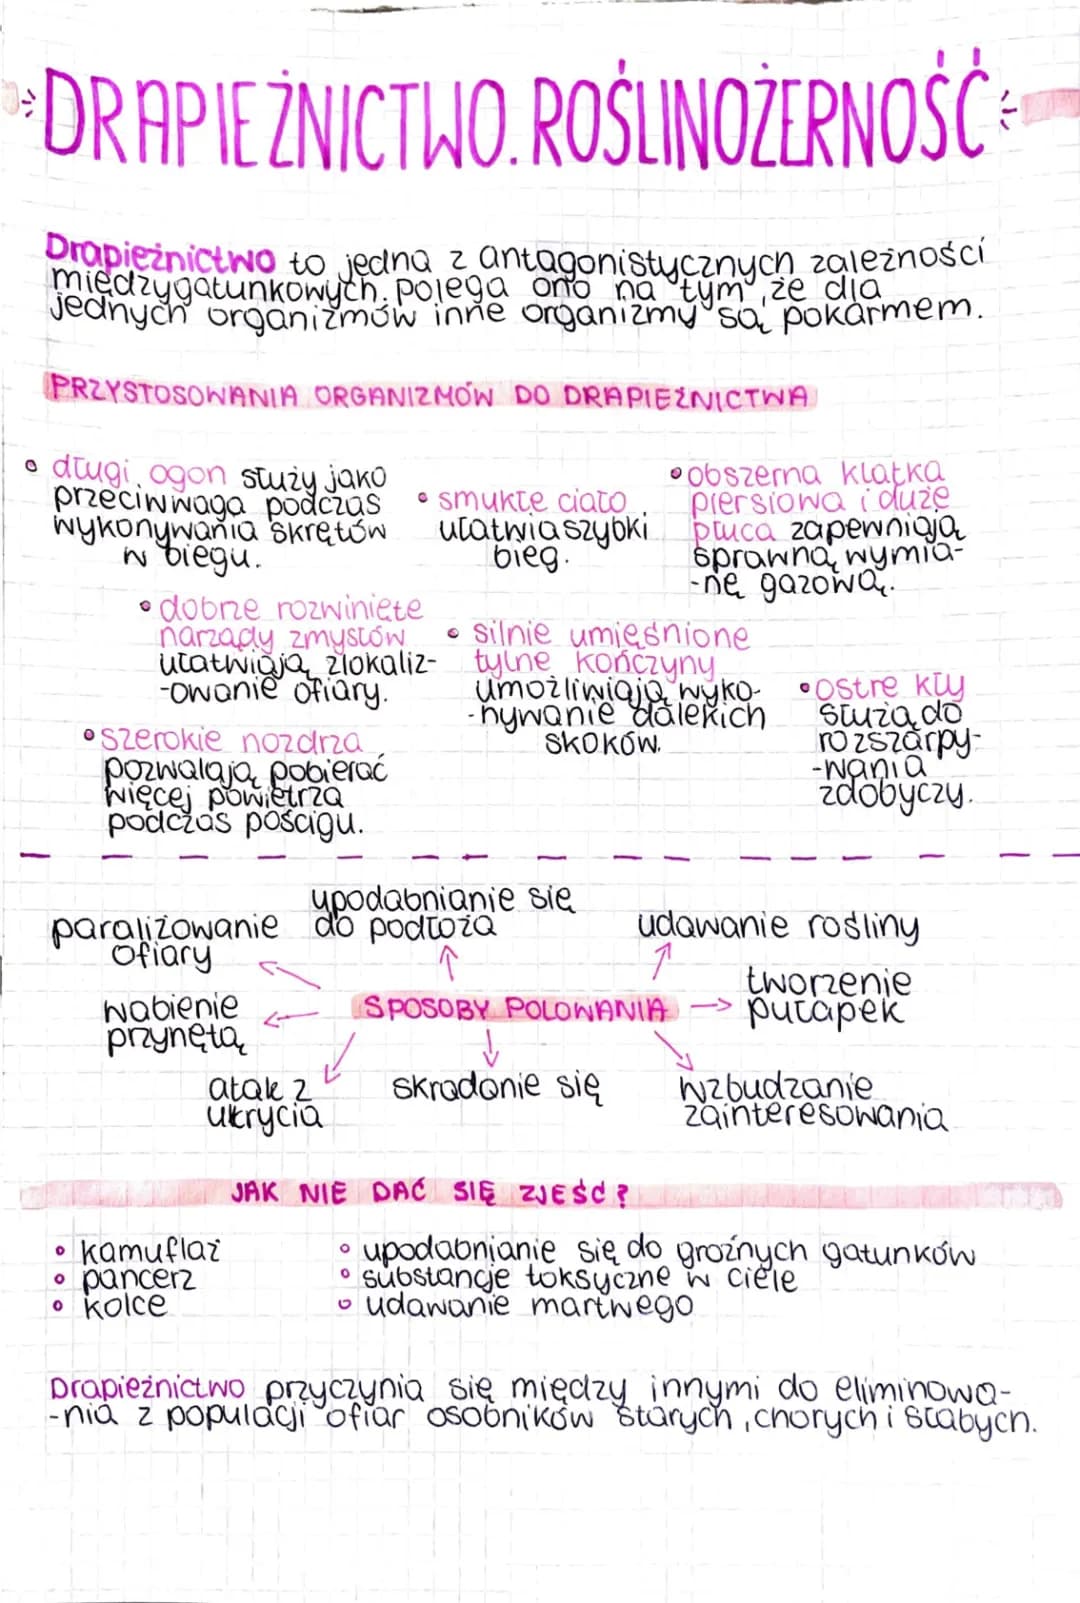 DRAPIEŻNICTWO. ROŚLINOŻERNOŚĆ
Drapieżnictwo to jedna z antagonistycznych zależności
międzygatunkowych. Polega ono na tym, że dla
jednych organizmów inne organizmy są pokarmem.
PRZYSTOSOWANIA ORGANIZMÓW DO DRAPIEŻNICTWA
• długi ogon służy jako
przeciwwaga podczas
wykonywania skrętów
w biegu.
• smukłe ciało
ułatwia szybki
bieg.
• obszerna klatka
piersiowa i duże
płuca zapewniają
sprawną wymia-
-nę gazową.
• dobrze rozwinięte
narządy zmysłów
ułatwiają zlokaliz-
-owanie ofiary.
• silnie umięśnione
tylne kończyny
umożliwiają wyko-
-nywanie dalekich
skoków.
• ostre kły
służą do
rozszarpy-
-wania
zdobyczy.
• szerokie nozdrza
pozwalają pobierać
więcej powietrza
podczas pościgu.
upodabnianie się
do podłoża
paraliżowanie
ofiary
udawanie rośliny
wabienie
przynętą
SPOSOBY POLOWANIA
tworzenie
pułapek
atak z
ukrycia
skradanie się
wzbudzanie
zainteresowania
JAK NIE DAĆ SIĘ ZJEŚĆ?
• kamuflaż
• pancerz
• kolce
• upodabnianie się do groźnych gatunków
• substancje toksyczne w ciele
• udawanie martwego
Drapieżnictwo przyczynia się między innymi do eliminowa-
-nia z populacji ofiar osobników starych, chorych i słabych.